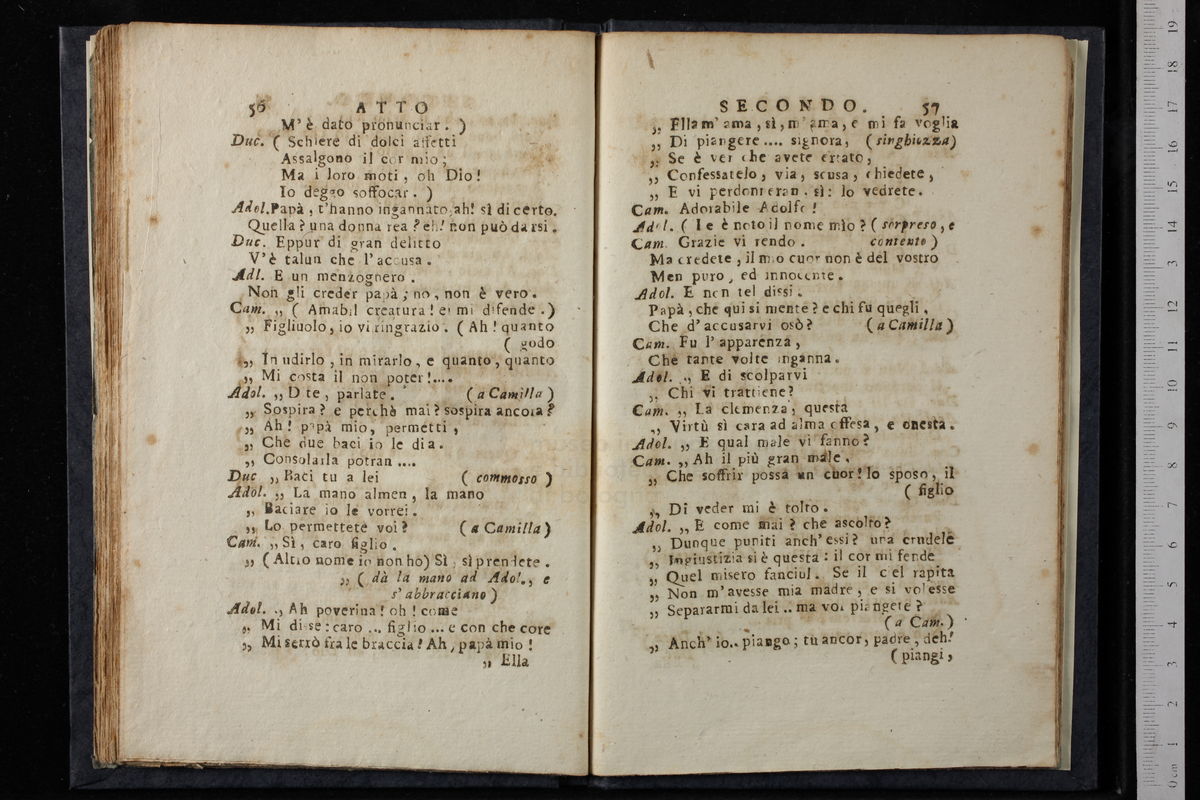 56 ATTO
M'è dato pronunciar. )
Duc. ( Schiere di dolci affetti
Assalgono il cor mio;
Ma i loro moti, oh Dio!
Io deggio soffocar. )
Adol. Papà, t'hanno ingannato, ah! sì di certo.
Quella? una donna rea? eh! non può darsi.
Duc. Eppur di gran delitto
V'è talun che l'accusa.
Adl. E un menzognero.
Non gli creder papà; no, non è vero.
Cam. „ ( Amabil creatura! ei mi difende. )
„ Figliuolo, io vi ringrazio. ( Ah! quanto
( godo
„ In udirlo, in mirarlo, e quanto, quanto
„ Mi costa il non poter!....
Adol. „ Dite, parlate. ( a Camilla )
„ Sospira? e perchè mai? sospira ancora?
„ Ah! papà mio, permetti,
„ Che due baci io le dia.
„ Consolarla potran ....
Duc „ Baci tu a lei ( commosso )
Adol. „ La mano almen, la mano
„ Baciare io le vorrei.
„ Lo permettete voi? ( a Camilla )
Cam. „ Sì, caro figlio.
„ ( Altro nome io non ho) Sì, sì prendete.
„ ( dà la mano ad Adol., e
s'abbracciano )
Adol. „ Ah poverina! oh! come
„ Mi disse: caro ... figlio ... e con che core
„ Mi serrò fra le braccia! Ah, papà mio!
„ Ella
SECONDO. 57
„ Ella m'ama, sì, m'ama, e mi fa voglia
„ Di piangere.... signora, ( singhiozza )
„ Se è ver che avete errato,
„ Confessatelo, via, scusa, chiedete,
„ E vi perdoneran. sì: lo vedrete.
Cam. Adorabile Adolfo!
Adol. ( Le è noto il nome mìo? ( sorpreso, e
Cam. Grazie vi rendo. contento )
Ma credete, il mio cuor non è del vostro
Men puro, ed innocente.
Adol. E non tel dissi.
Papà, che qui si mente? e chi fu quegli,
Che d'accusarvi osò? ( a Camilla )
Cam. Fu l'apparenza,
Che tante volte inganna.
Adol. „ E di scolparvi
„ Chi vi trattiene?
Cam. „ La clemenza, questa
„ Virtù sì cara ad alma offesa, e onesta.
Adol. „ E qual male vi fanno?
Cam. „ Ah il più gran male,
„ Che soffrir possa un cuor! lo sposo, il
( figlio
„ Di veder mi è tolto.
Adol. „ E come mai? che ascolto?
„ Dunque puniti anch'essi? una crudele
„ Ingiustizia si è questa: il cor mi fende
„ Quel misero fanciul. Se il ciel rapita
„ Non m'avesse mia madre, e si volesse
„ Separarmi da lei .. ma voi piangete?
( a Cam. )
„ Anch'io.. piango; tu ancor, padre, deh!
( piangi,